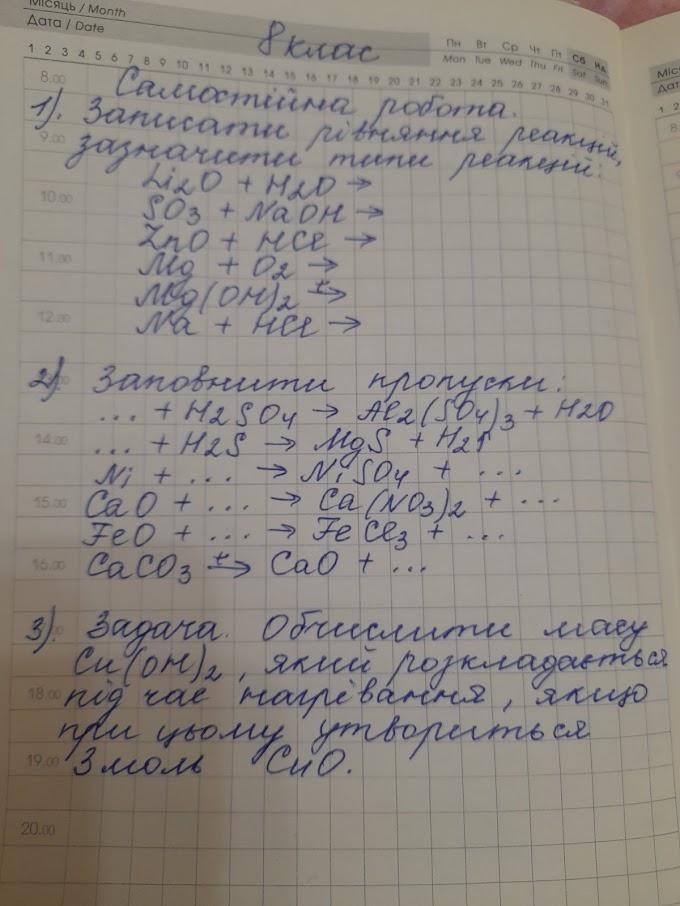 Місяць / Month
Дата / Date
8 клас
Пн Вт Ср Чт Пт Сб Нд
Mon Tue Wed Thu Fri Sat Sun
1 2 3 4 5 6 7 8 9 10 11 12 13 14 15 16 17 18 19 20 21 22 23 24 25 26 27 28 29 30 31
8.00 Самостійна робота.
1). Записати рівняння реакцій,
9.00
зазначити типи реакцій:
Li2O + H2O →
10.00
SO3 + NaOH →
ZnO + HCl →
11.00
Mg + O2 →
Mg(OH)2 t→
12.00
Na + HCl →
2). Заповнити пропуски:
... + H2SO4 → Al2(SO4)3 + H2O
14.00
... + H2S → MgS + H2↑
Ni + ... → NiSO4 + ...
15.00
CaO + ... → Ca(NO3)2 + ...
FeO + ... → FeCl3 + ...
16.00
CaCO3 t→ CaO + ...
3). Задача. Обчислити масу
Cu(OH)2, який розкладається
18.00 під час нагрівання, якщо
при цьому утвориться
19.00 3 моль CuO.
20.00